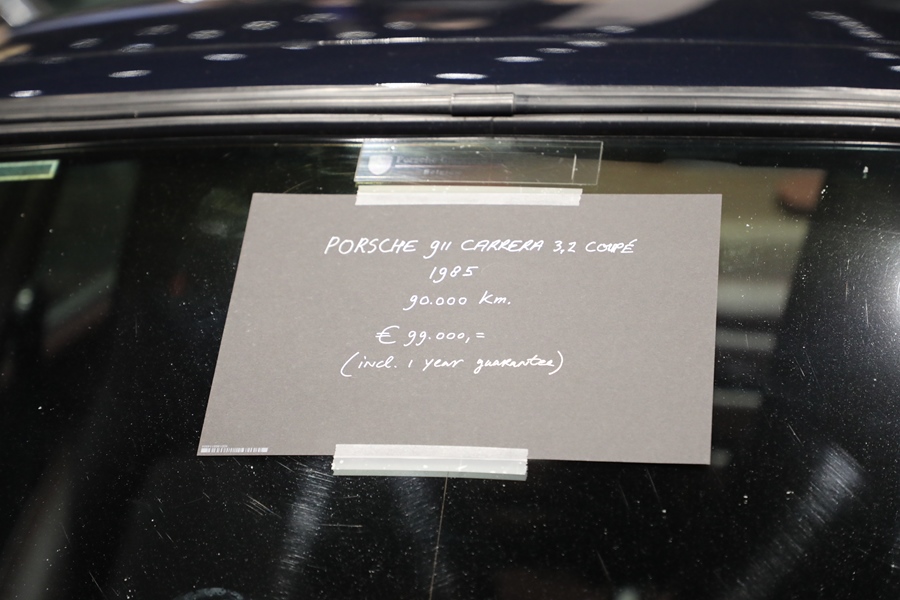 PORSCHE 911 CARRERA 3,2 COUPÉ
1985
90.000 Km.
€ 99.000,=
(incl. 1 year guarantee)